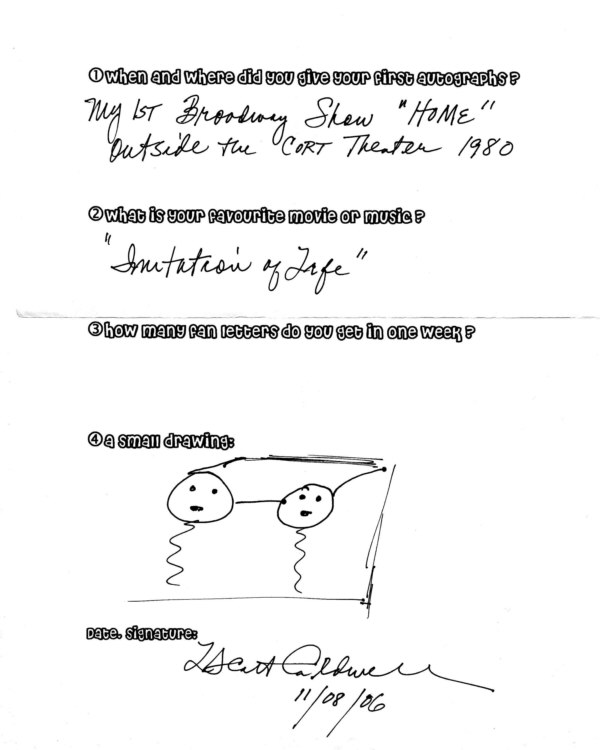 ① when and where did you give your first autographs?
My 1ST Broadway Show "HOME"
Outside the CORT Theater 1980
② what is your favourite movie or music?
"Imitation of Life"
③ how many fan letters do you get in one week?
④ a small drawing:
Date. signature:
LScott Caldwell
11/08/06